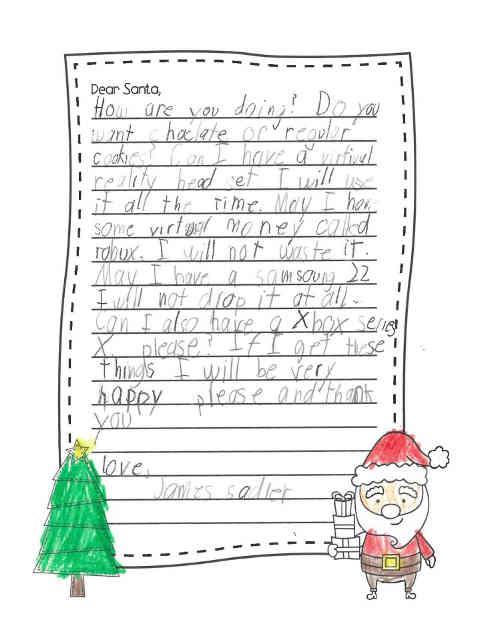 Dear Santa,
How are you doing? Do you
want choclate or reguler
cookies? Can I have a virtiual
reality head set I will use
it all the time. May I have
some virtual money called
robux. I will not waste it.
May I have a samsoung 22
I will not drop it at all.
Can I also have a Xbox series
X please? If I get these
things I will be very
happy please and thank
you
love,
James sadler